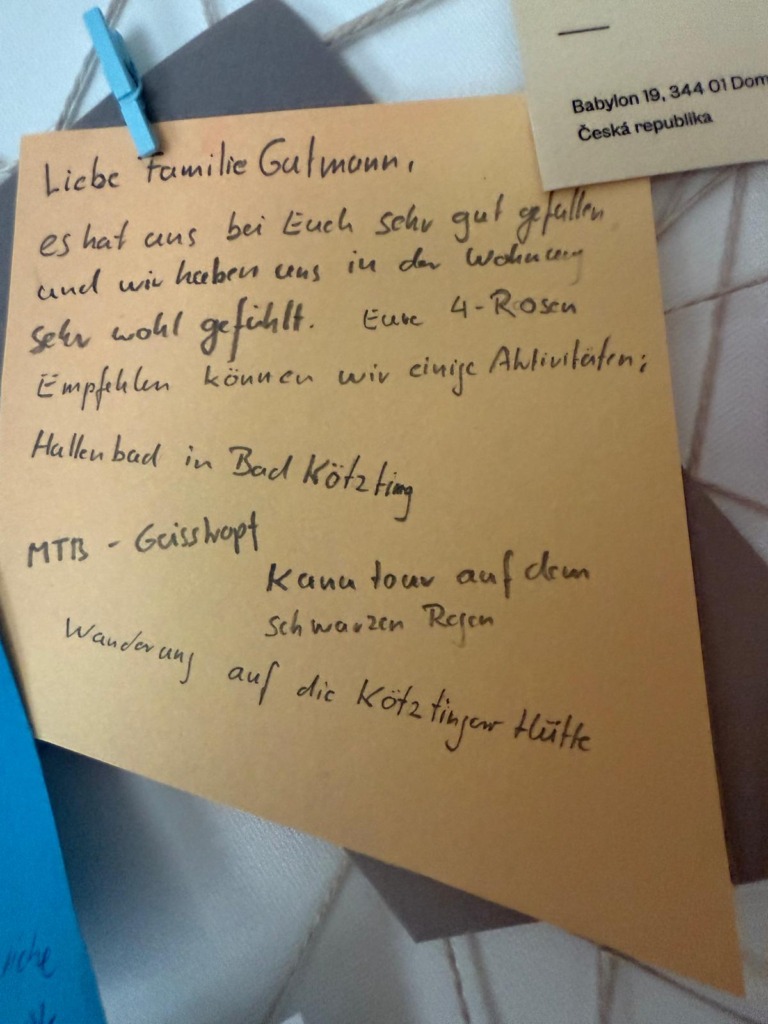 Babylon 19, 344 01 Dom
Česká republika
Liebe Familie Gutmann,
es hat uns bei Euch sehr gut gefallen
und wir haben uns in der Wohnung
sehr wohl gefühlt. Eure 4-Rosen
Empfehlen können wir einige Aktivitäten:
Hallenbad in Bad Kötzting
MTB - Geisskopf
Kanu tour auf dem
schwarzen Regen
Wanderung auf die Kötztinger Hütte